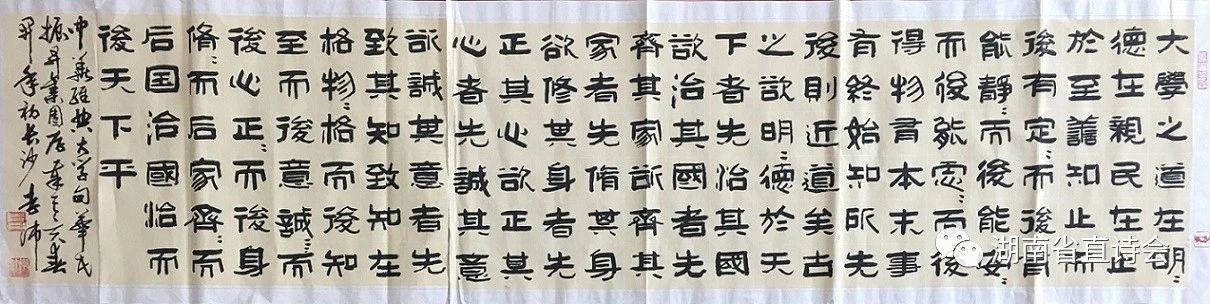 大學之道在明〻
德在親民在止
於至譱知止而
後有定〻而後
能靜〻而後能安〻
而後能慮〻而後
得物有本末事
有終始知所先
後則近道矣古
之欲明〻德於天
下者先治其國
欲治其國者先
齊其家欲齊其
家者先脩其身
欲修其身者先
正其心欲正其
心者先誠其意
欲誠其意者先
致其知致知在
格物〻格而後知
至而後意誠〻而
後心正〻而後身
脩〻而后家齊〻而
后国治國治而
後天下平
中華經典大學句
振昇集團
年初長沙
湖南省直诗会